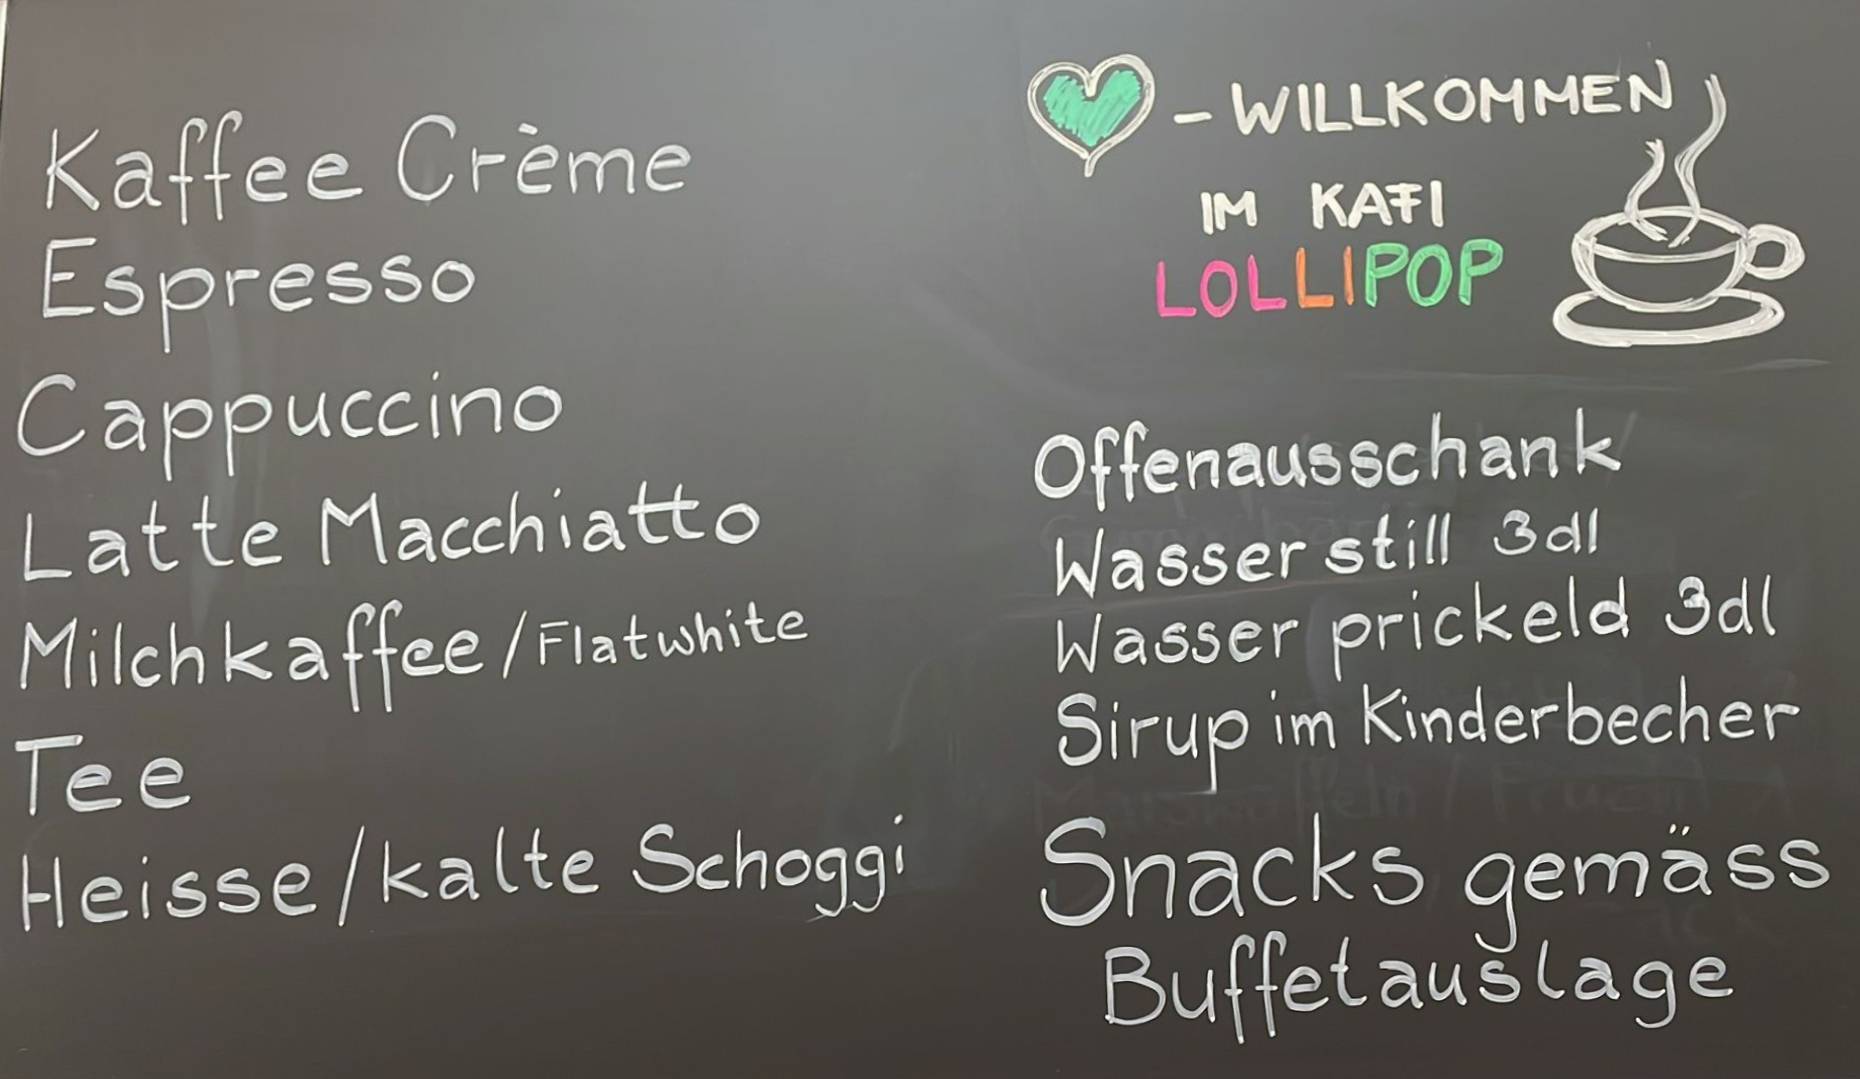 Kaffee Crème
Espresso
Cappuccino
Latte Macchiatto
Milchkaffee/Flatwhite
Tee
Heisse/kalte Schoggi
- WILLKOMMEN
IM KAFI
LOLLIPOP
Offenausschank
Wasser still 3dl
Wasser prickeld 3dl
Sirup im Kinderbecher
Snacks gemäss
Buffetauslage